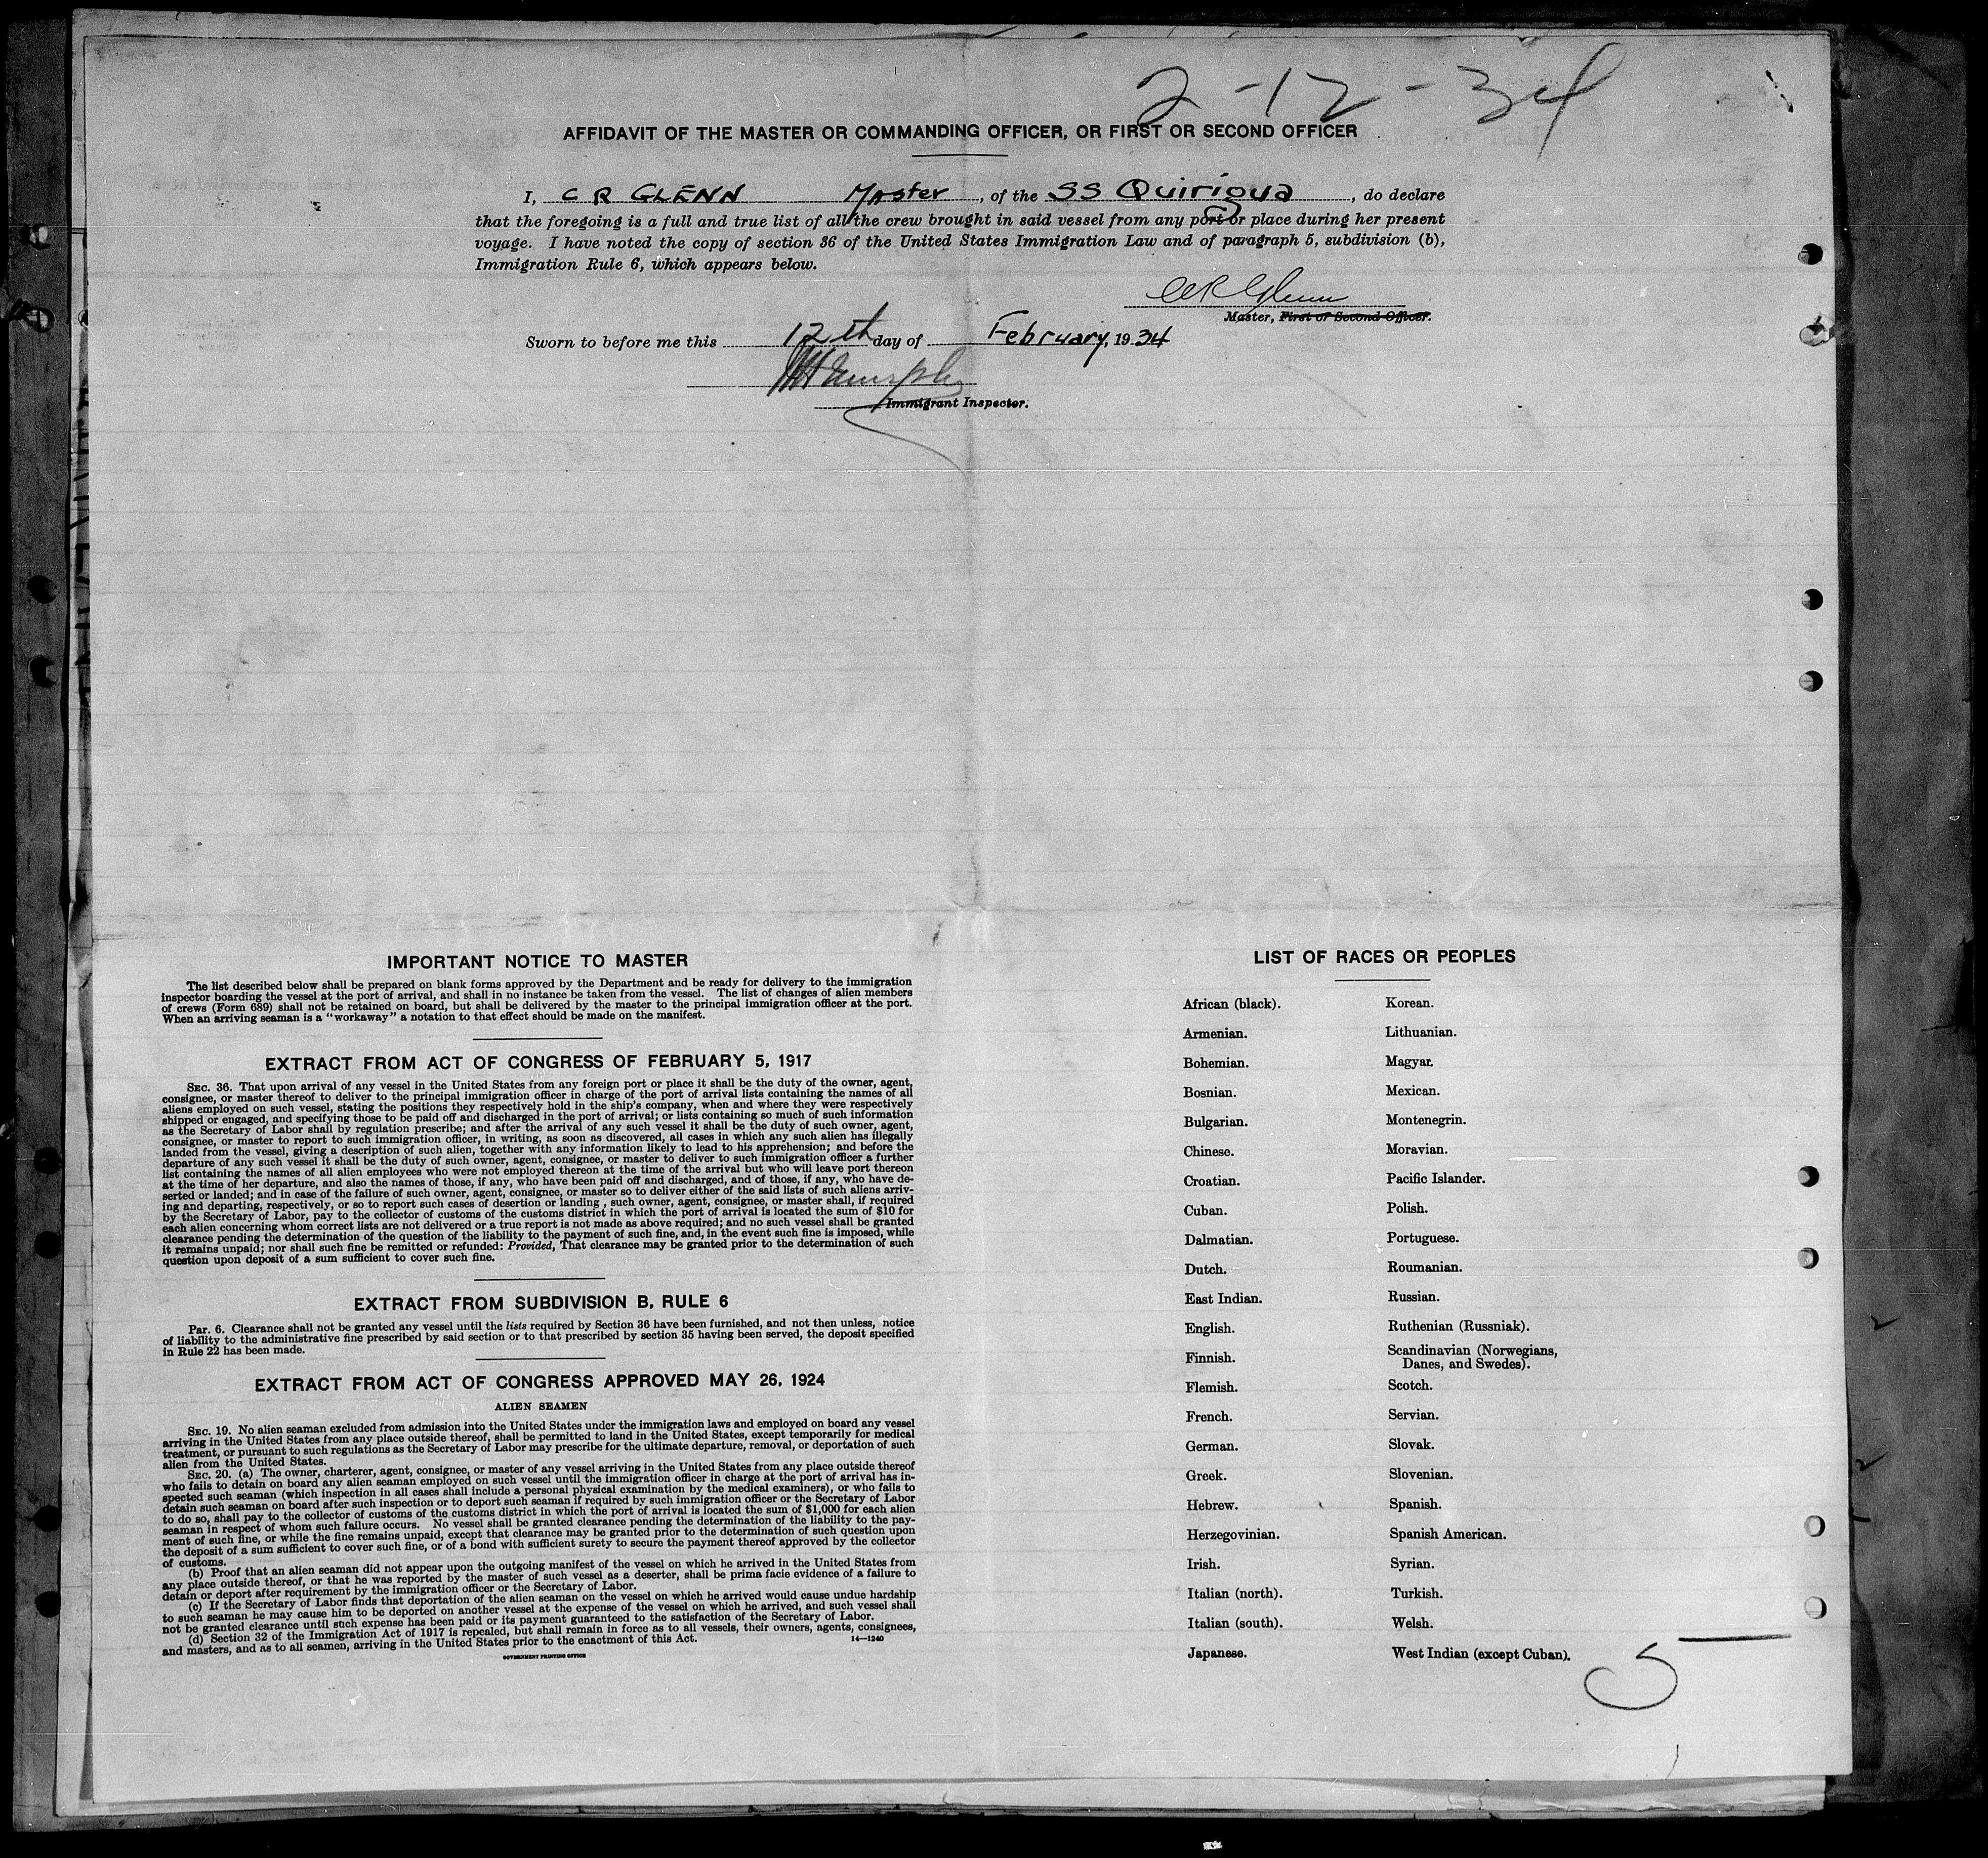 2-12-34
AFFIDAVIT OF THE MASTER OR COMMANDING OFFICER, OR FIRST OR SECOND OFFICER
I, C R GLENN Master, of the SS Quirigua, do declare
that the foregoing is a full and true list of all the crew brought in said vessel from any port or place during her present
voyage. I have noted the copy of section 36 of the United States Immigration Law and of paragraph 5, subdivision (b),
Immigration Rule 6, which appears below.
CR Glenn
Master, First or Second Officer.
Sworn to before me this 12th day of February, 1934
Murphy
Immigrant Inspector.
IMPORTANT NOTICE TO MASTER
The list described below shall be prepared on blank forms approved by the Department and be ready for delivery to the immigration
inspector boarding the vessel at the port of arrival, and shall in no instance be taken from the vessel. The list of changes of alien members
of crews (Form 689) shall not be retained on board, but shall be delivered by the master to the principal immigration officer at the port.
When an arriving seaman is a "workaway" a notation to that effect should be made on the manifest.
EXTRACT FROM ACT OF CONGRESS OF FEBRUARY 5, 1917
SEC. 36. That upon arrival of any vessel in the United States from any foreign port or place it shall be the duty of the owner, agent,
consignee, or master thereof to deliver to the principal immigration officer in charge of the port of arrival lists containing the names of all
aliens employed on such vessel, stating the positions they respectively hold in the ship's company, when and where they were respectively
shipped or engaged, and specifying those to be paid off and discharged in the port of arrival; or lists containing so much of such information
as the Secretary of Labor shall by regulation prescribe; and after the arrival of any such vessel it shall be the duty of such owner, agent,
consignee, or master to report to such immigration officer, in writing, as soon as discovered, all cases in which any such alien has illegally
landed from the vessel, giving a description of such alien, together with any information likely to lead to his apprehension; and before the
departure of any such vessel it shall be the duty of such owner, agent, consignee, or master to deliver to such immigration officer a further
list containing the names of all alien employees who were not employed thereon at the time of the arrival but who will leave port thereon
at the time of her departure, and also the names of those, if any, who have been paid off and discharged, and of those, if any, who have de-
serted or landed; and in case of the failure of such owner, agent, consignee, or master so to deliver either of the said lists of such aliens arriv-
ing and departing, respectively, or so to report such cases of desertion or landing , such owner, agent, consignee, or master shall, if required
by the Secretary of Labor, pay to the collector of customs of the customs district in which the port of arrival is located the sum of $10 for
each alien concerning whom correct lists are not delivered or a true report is not made as above required; and no such vessel shall be granted
clearance pending the determination of the question of the liability to the payment of such fine, and, in the event such fine is imposed, while
it remains unpaid; nor shall such fine be remitted or refunded: Provided, That clearance may be granted prior to the determination of such
question upon deposit of a sum sufficient to cover such fine.
EXTRACT FROM SUBDIVISION B, RULE 6
Par. 6. Clearance shall not be granted any vessel until the lists required by Section 36 have been furnished, and not then unless, notice
of liability to the administrative fine prescribed by said section or to that prescribed by section 35 having been served, the deposit specified
in Rule 22 has been made.
EXTRACT FROM ACT OF CONGRESS APPROVED MAY 26, 1924
ALIEN SEAMEN
SEC. 19. No alien seaman excluded from admission into the United States under the immigration laws and employed on board any vessel
arriving in the United States from any place outside thereof, shall be permitted to land in the United States, except temporarily for medical
treatment, or pursuant to such regulations as the Secretary of Labor may prescribe for the ultimate departure, removal, or deportation of such
alien from the United States.
SEC. 20. (a) The owner, charterer, agent, consignee, or master of any vessel arriving in the United States from any place outside thereof
who fails to detain on board any alien seaman employed on such vessel until the immigration officer in charge at the port of arrival has in-
spected such seaman (which inspection in all cases shall include a personal physical examination by the medical examiners), or who fails to
detain such seaman on board after such inspection or to deport such seaman if required by such immigration officer or the Secretary of Labor
to do so, shall pay to the collector of customs of the customs district in which the port of arrival is located the sum of $1,000 for each alien
seaman in respect of whom such failure occurs. No vessel shall be granted clearance pending the determination of the liability to the pay-
ment of such fine, or while the fine remains unpaid, except that clearance may be granted prior to the determination of such question upon
the deposit of a sum sufficient to cover such fine, or of a bond with sufficient surety to secure the payment thereof approved by the collector
of customs.
(b) Proof that an alien seaman did not appear upon the outgoing manifest of the vessel on which he arrived in the United States from
any place outside thereof, or that he was reported by the master of such vessel as a deserter, shall be prima facie evidence of a failure to
detain or deport after requirement by the immigration officer or the Secretary of Labor.
(c) If the Secretary of Labor finds that deportation of the alien seaman on the vessel on which he arrived would cause undue hardship
to such seaman he may cause him to be deported on another vessel at the expense of the vessel on which he arrived, and such vessel shall
not be granted clearance until such expense has been paid or its payment guaranteed to the satisfaction of the Secretary of Labor.
(d) Section 32 of the Immigration Act of 1917 is repealed, but shall remain in force as to all vessels, their owners, agents, consignees,
and masters, and as to all seamen, arriving in the United States prior to the enactment of this Act. 14—1240
GOVERNMENT PRINTING OFFICE
LIST OF RACES OR PEOPLES
African (black). Korean.
Armenian. Lithuanian.
Bohemian. Magyar.
Bosnian. Mexican.
Bulgarian. Montenegrin.
Chinese. Moravian.
Croatian. Pacific Islander.
Cuban. Polish.
Dalmatian. Portuguese.
Dutch. Roumanian.
East Indian. Russian.
English. Ruthenian (Russniak).
Finnish. Scandinavian (Norwegians,
Danes, and Swedes).
Flemish. Scotch.
French. Servian.
German. Slovak.
Greek. Slovenian.
Hebrew. Spanish.
Herzegovinian. Spanish American.
Irish. Syrian.
Italian (north). Turkish.
Italian (south). Welsh.
Japanese. West Indian (except Cuban).